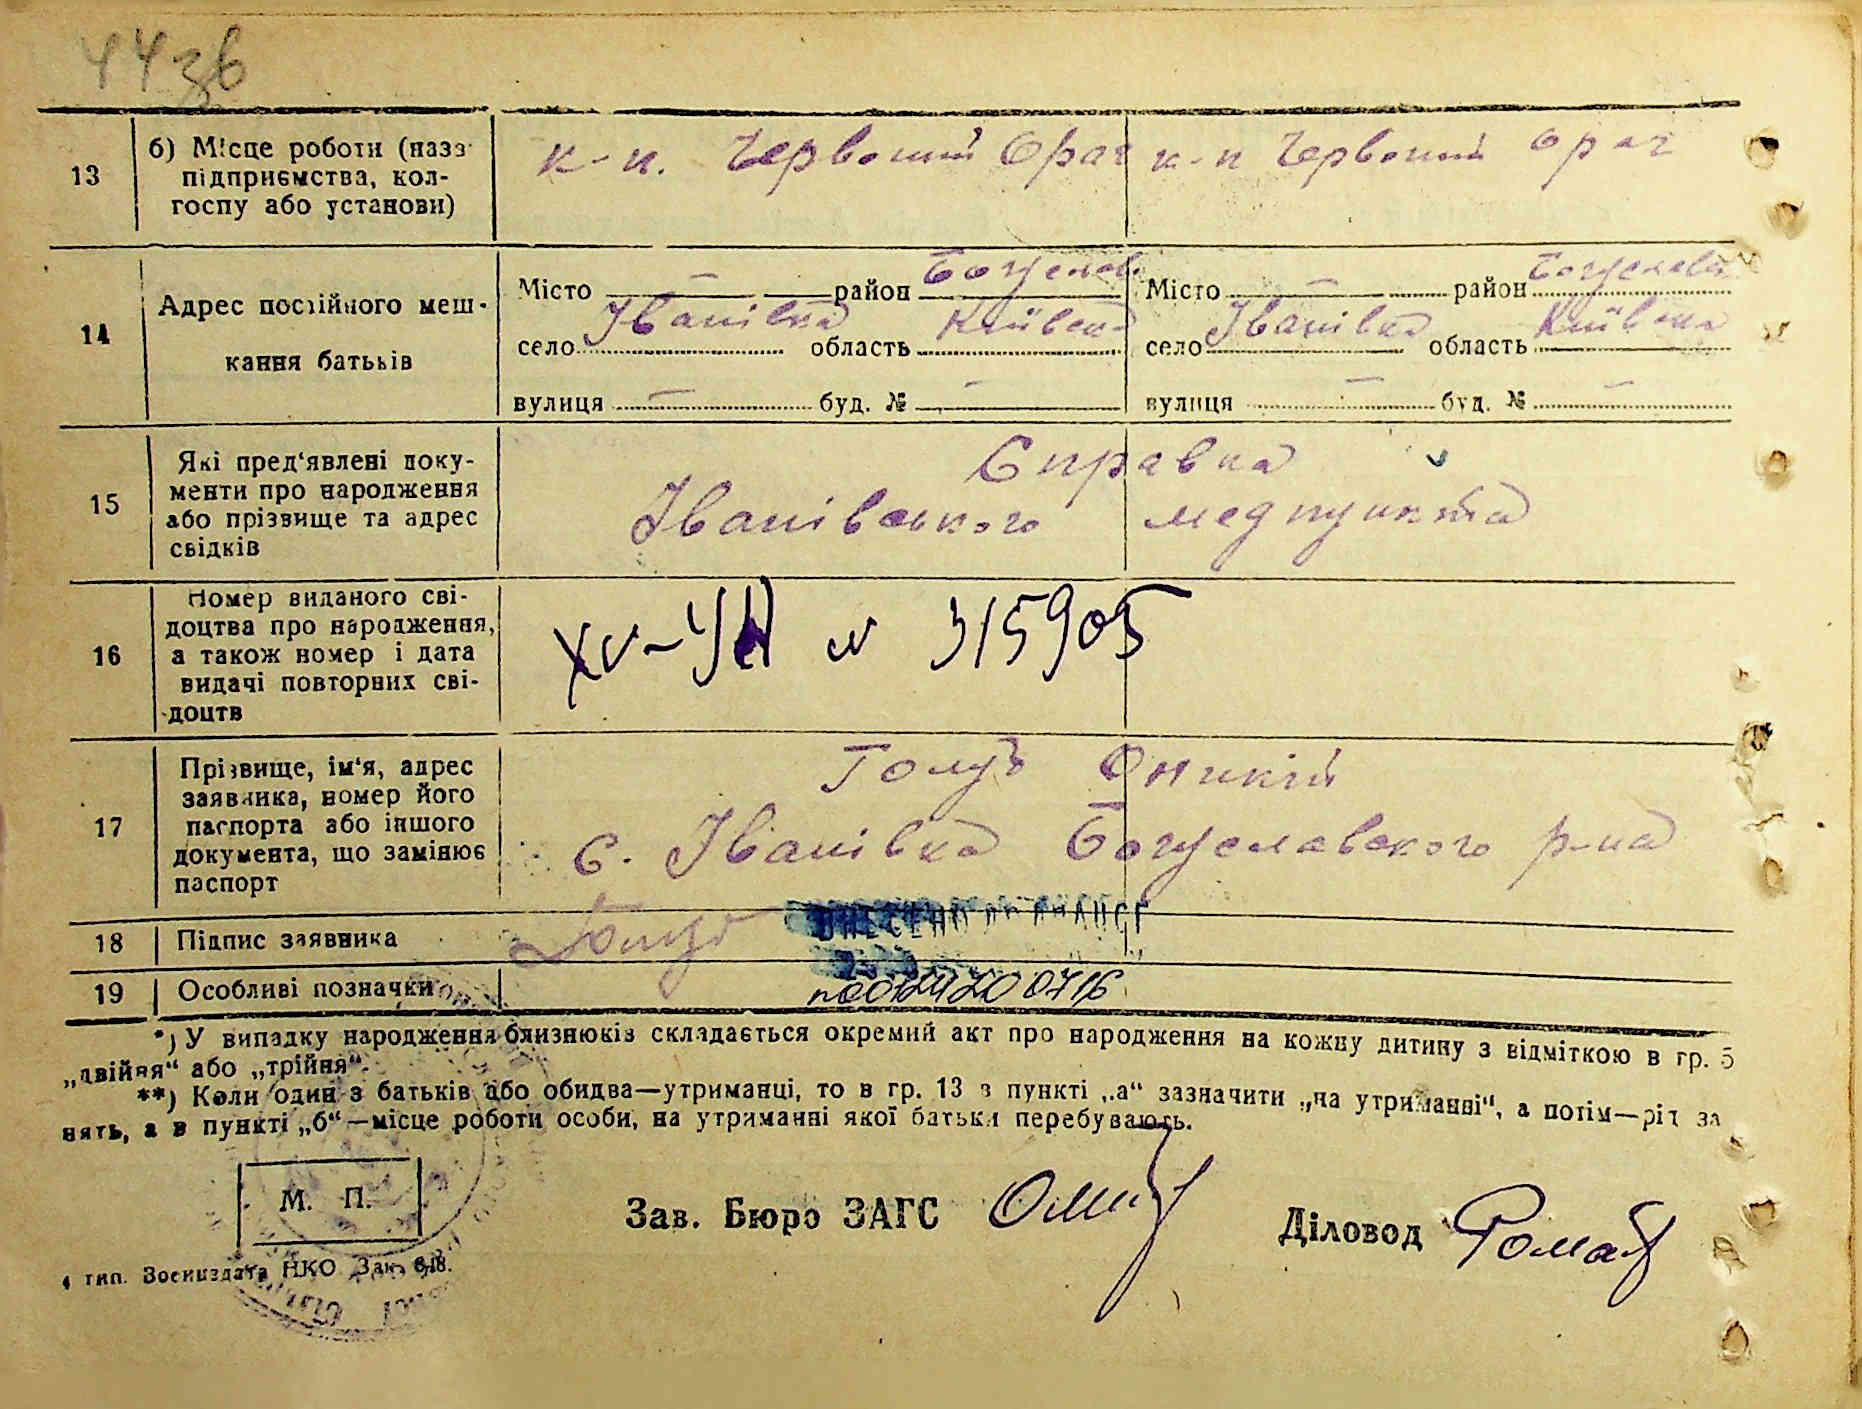 44зв
13 б) Місце роботи (назв підприємства, колгоспу або установи) к-п. Червоний Орач к-п Червоний Орач
14 Адрес постійного мешкання батьків
Місто — район Богуслав. Місто — район Богуславськ
село Іванівка область Київська село Іванівка область Київська
вулиця — буд. № — вулиця — буд. № —
15 Які пред‘явлені документи про народження або прізвище та адрес свідків
Справка
Іванівського медпункта
16 Номер виданого свідоцтва про народження, а також номер і дата видачі повторних свідоцтв
XV-УН № 315905
17 Прізвище, ім‘я, адрес заявника, номер його паспорта або іншого документа, що замінює паспорт
Голуб Оникій
с. Іванівка Богуславського р-на
18 Підпис заявника Голуб
ВНЕСЕНО ДО
19 Особливі позначки 00124200716
*) У випадку народження близнюків складається окремий акт про народження на кожну дитину з відміткою в гр. 5
„двійня“ або „трійня“.
**) Коли один з батьків або обидва—утриманці, то в гр. 13 в пункті „а“ зазначити „на утриманні“, а потім—рід за
нять, а в пункті „б“—місце роботи особи, на утриманні якої батьки перебувають.
М. П.
Зав. Бюро ЗАГС Діловод
4 тип. Воениздата НКО Зак. 618.